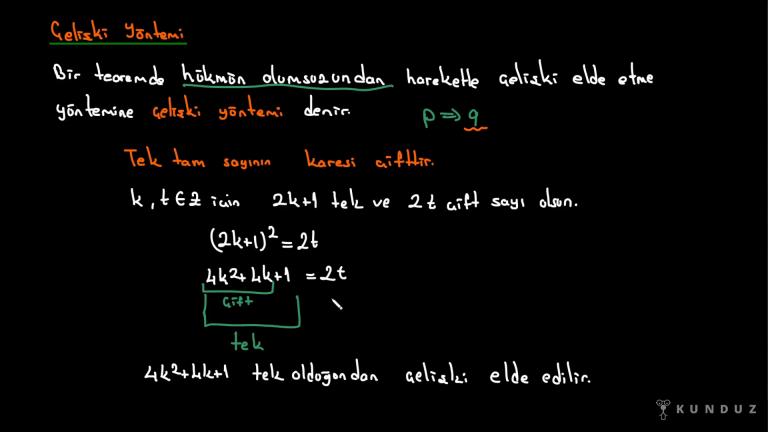 Çelişki Yöntemi
Bir teoremde hükmün olumsuzundan hareketle çelişki elde etme
yöntemine çelişki yöntemi denir.
p ⇒ q
Tek tam sayının karesi çifttir.
k, t ∈ Z için 2k+1 tek ve 2t çift sayı olsun.
(2k+1)² = 2t
4k²+4k+1 = 2t
çift
tek
4k²+4k+1 tek olduğundan çelişki elde edilir.
KUNDUZ